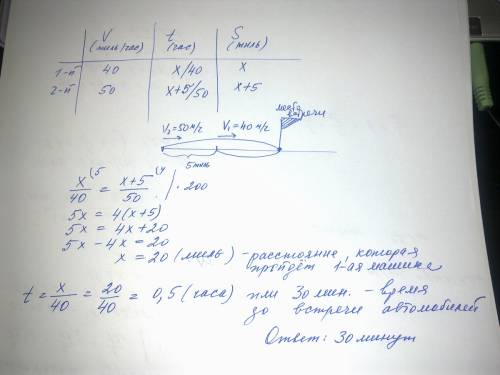 V t S
(миль/час) (час) (миль)
1-й 40 x/40 x
2-й 50 x+5/50 x+5
место встречи
V₂=50 м/г V₁=40 м/г
5 миль
x/40 (5 = x+5/50 (4 | · 200
5x = 4(x+5)
5x = 4x+20
5x - 4x = 20
x = 20 (миль) - расстояние, которая
пройдёт 1-ая машина
t = x/40 = 20/40 = 0,5 (часа) или 30 мин. - время
до встречи автомобилей
Ответ: 30 минут